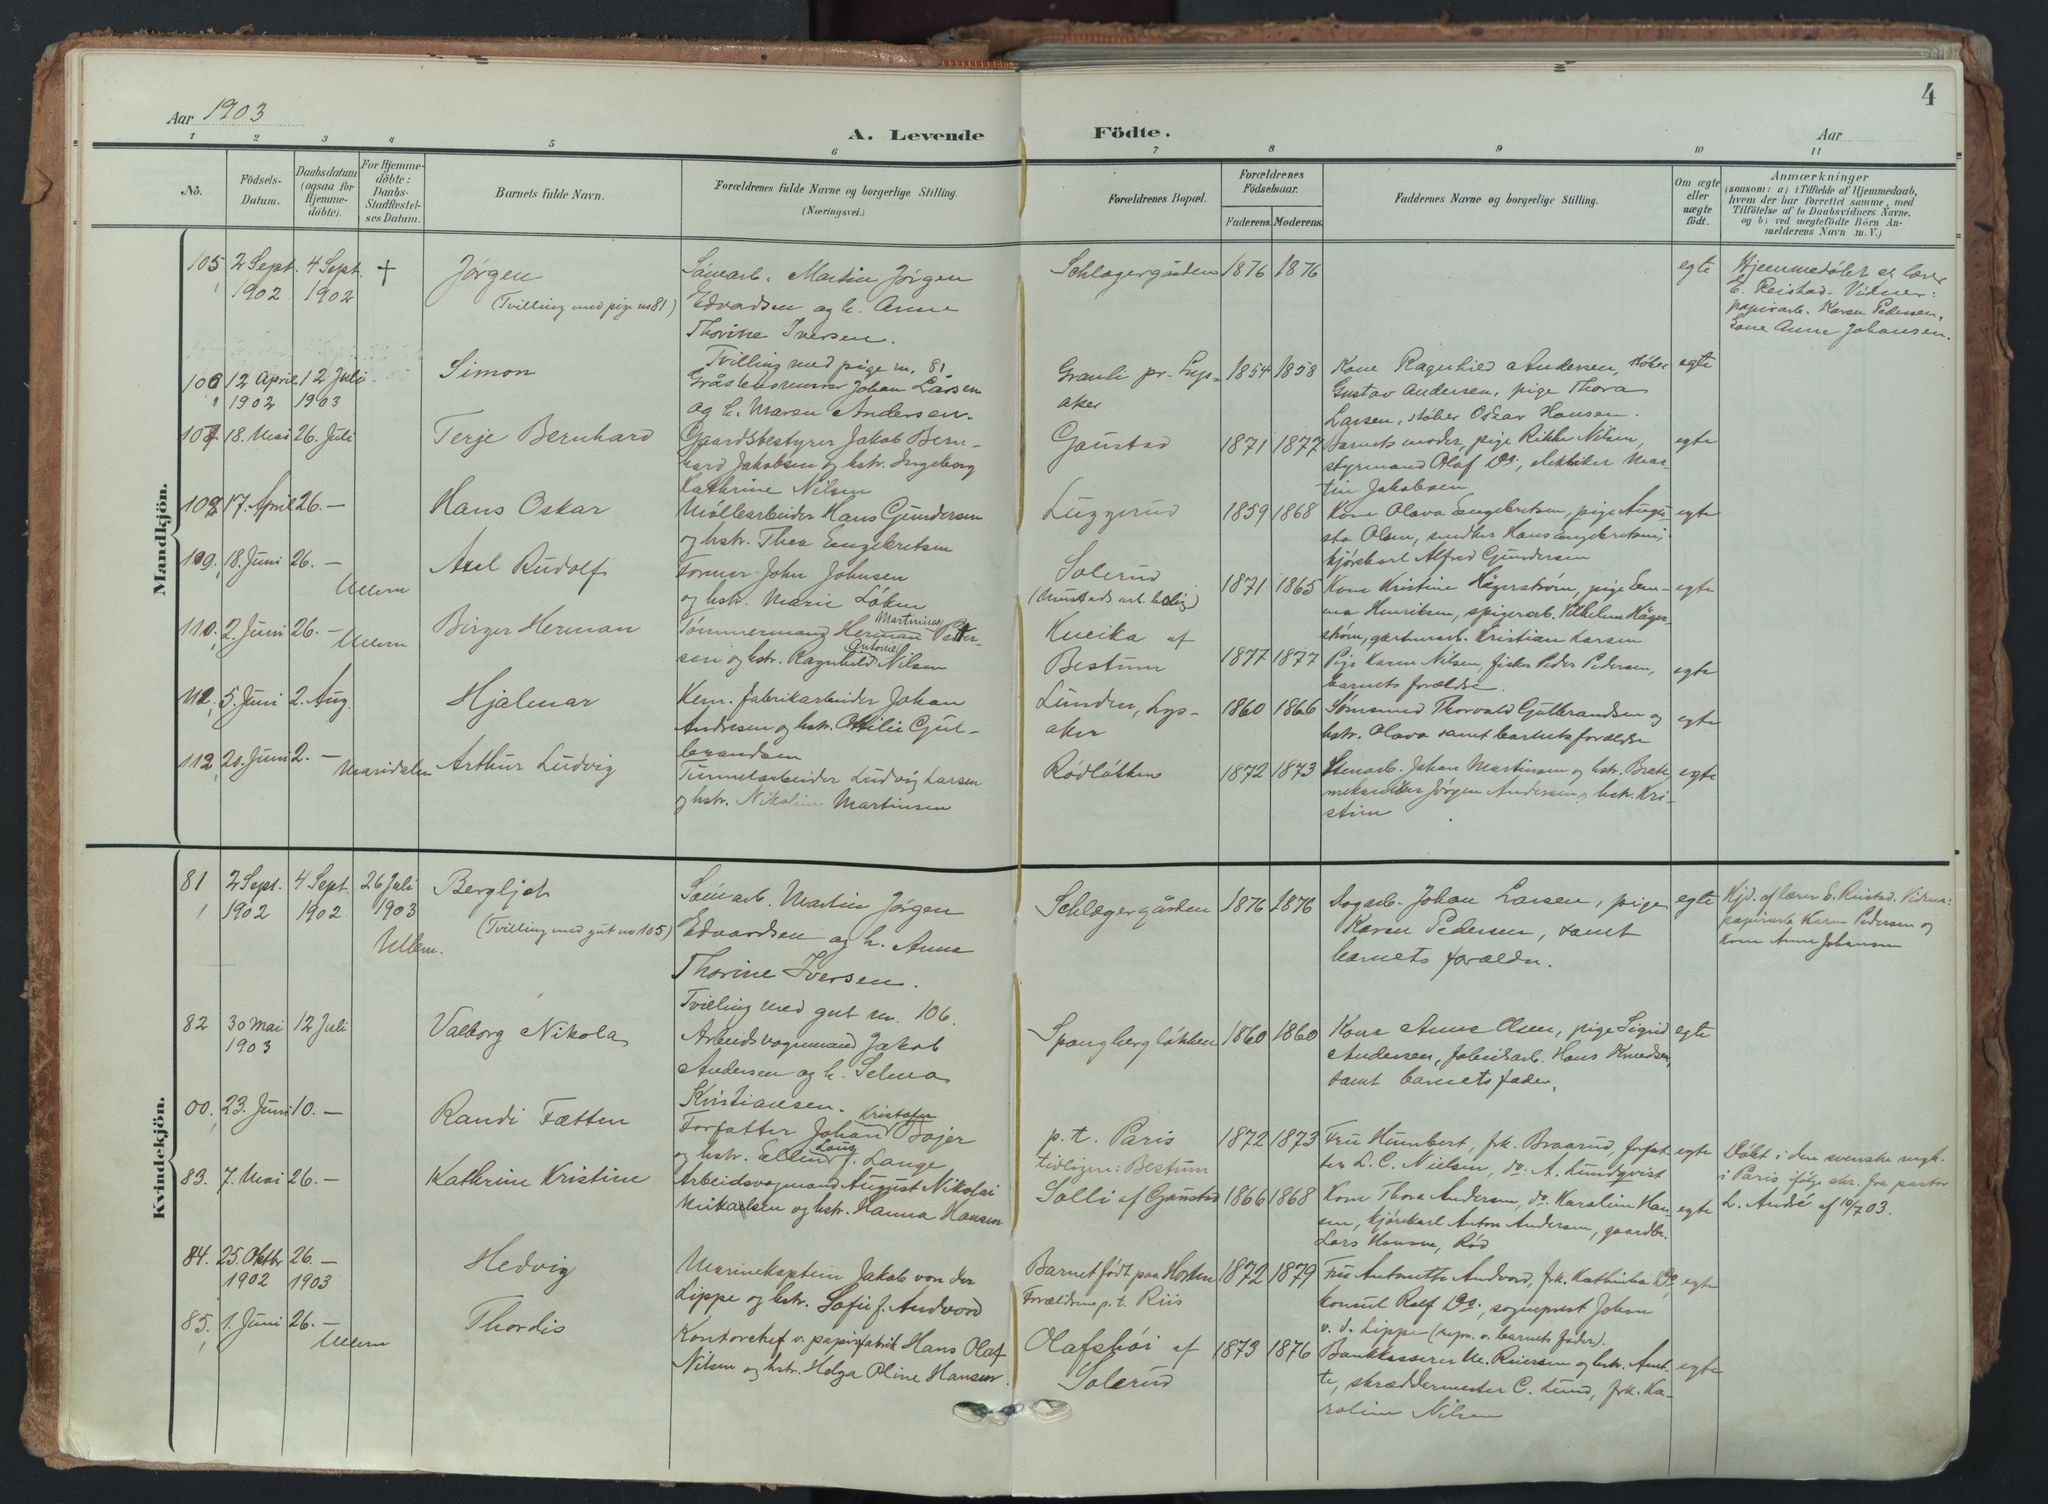 4
Aar 1903
A. Levende Födte.
Aar
1 2 3 4 5 6 7 8 9 10 11
No.
Födsels-
Datum.
Daabsdatum
(ogsaa för
Hjemme-
döbte).
For Hjemme-
döbte:
Daabs-
Stadfæstel-
ses Datum.
Barnets fulde Navn.
Forældrenes fulde Navne og borgerlige Stilling.
(Næringsvei.)
Forældrenes Bopæl.
Forældrenes
Födselsaar.
Faderens. Moderens.
Faddernes Navne og borgerlige Stilling.
Om ægte
eller
uægte
födt.
Anmærkninger
(saasom: a) i Tilfælde af Hjemmedaab,
hvem der har forrettet samme, med
Tilföielse af to Daabsvidners Navne.
og b) ved uægtefödte Börn An-
melderens Navn m. V.)
Mandkjön.
105 2 Sept. 1902 4 Sept. 1902 +
Jørgen
(Tvilling med pige no 81)
Martin Jørgen
Edvardsen og h. Anne
Thorine Iversen.
Tvilling med pige n. 81
Schlagergården 1876 1876 egte
Hjemmedøbt af lærer
E. Reistad. Vidner:
papirarb. Karen Pedersen,
Kone Anne Johansen.
106 12 April 1902 12 Juli 1903
Simon
Johan Larsen
og h. Maren Andersen.
Granli pr. Lys-
aker
1854 1858
Kone Ragnhild Andersen, støber
Gustav Andersen, pige Thora
Larsen, støber Oskar Hansen.
egte
107 18. Mai 26. Juli
Terje Bernhard
Gaardsbestyrer Jakob Bern-
hard Jakobsen og hstr. Ingeborg
Kathrine Nilsen
Gaustad 1871 1877
Barnets moder, pige Rikke Nilsen,
styrmand Olaf Do, elektriker Mar-
tin Jakobsen
egte
108 17. April 26. —
Hans Oskar
Møllearbeider Hans Gundersen
og hstr. Thea Engebretsen
Lyggerud 1859 1868
Kone Olava Engebretsen, pige Augu-
sta Olsen, Hans Engebretsen,
kjørekarl Alfred Gundersen
egte
109. 18. Juni 26. —
Ullern
Axel Rudolf
Former John Johnsen
og hstr. Marie Løken
Solerud
(Mustads arb. bolig)
1871 1865
Kone Kristine Hägerstrøm, pige Em-
ma Henriksen, spigerarb. Vilhelm Häger-
strøm, gartnerarb. Kristian Larsen
egte
110. 2. Juni 26. —
Ullern
Birger Herman
Martinius
Tømmermand Herman Petter-
Antonie
sen og hstr. Ragnhild Nilsen
Kneika af
Bestum
1877 1877
Pige Karen Nilsen, fisker Peder Pedersen,
barnets forældre.
egte
111. 5. Juni 2. Aug.
Hjalmar
Kem. fabrikarbeider Johan
Andresen og hstr. Ottilie Gul-
brandsen
Lunden, Lys-
aker
1860 1866
Thorvald Gulbrandsen og
hstr. Olava samt barnets forældre
egte
112 20. Juni 2. —
Maridalen
Arthur Ludvig
Tunnelarbeider Ludvig Larsen
og hstr. Nikoline Martinsen
Rødløkken 1872 1873
Stenarb. Johan Martinsen og hstr. Beate,
Jørgen Andersen, hstr. Kri-
stine
egte
Kvindekjön.
81 2 Sept. 1902 4 Sept. 1902 26 Juli 1903
Ullern.
Bergljot
(Tvilling med gut no 105)
Martin Jørgen
Edvardsen og h. Anna
Thorine Iversen.
Tvilling med gut n. 106.
Schlagergården 1876 1876
Dagarb. Johan Larsen, pige
Karen Pedersen, samt
barnets forældre.
egte
Hjd. af lærer E. Reistad. Vidner:
papirarb Karen Pedersen og
Kone Anne Johansen
82 30 Mai 1903 12 Juli
Valborg Nikola
Arbeidsvognmand Jakob
Andersen og h. Selma
Kristiansen.
Spangbergløkken 1860 1860
Kone Anna Olsen, pige Sigrid
Andersen, fabrikarb. Hans Knudsen,
samt barnets fader.
egte
00. 23. Juni 10. —
Randi Fætten
Kristofer
Forfatter Johan Bojer
og hstr. Ellen f. Lange
p. t. Paris
tidligere: Bestum
1872 1873
Fru Humbert, frk. Braarud, forfat-
ter L. C. Nielsen, do. A. Lundqvist
egte
Døbt i den svenske
i Paris ifølge skr. fra pastor
L. André af 10/7 03.
83. 7. Mai 26. —
Kathrine Kristine
Arbeidsvognmand August Nikolai
Mikaelsen og hstr. Hanna Hansen
Solli af Gaustad 1866 1868
Kone Thora Andersen, do. Karoline Han-
sen, kjørekarl Anton Andersen, gaardbr.
Lars Hansen, Rød
egte
84. 25. Oktbr 1902 26. — 1903
Hedvig
Marinekaptein Jakob von der
Lippe og hstr. Sofie f. Andvord
Barnet født paa Horten
Forældrene p. t. Riis
1872 1879
Fru Antonette Andvord, frk. Kathinka Do,
konsul Rolf Do., sogneprest Johan
v. d. Lippe (repr. v. barnets fader).
egte
85. 1. Juni 26. —
Ullern
Thordis
Kontorchef v. papirfabrik Hans Olaf
Nilsen og hstr. Helga Oline Hansen.
Olafshøi af
Solerud
1873 1876
Bankkasserer M. Reiersen og hstr. Anet-
te, skræddermester C. Lund, frk. Ka-
roline Nilsen
egte